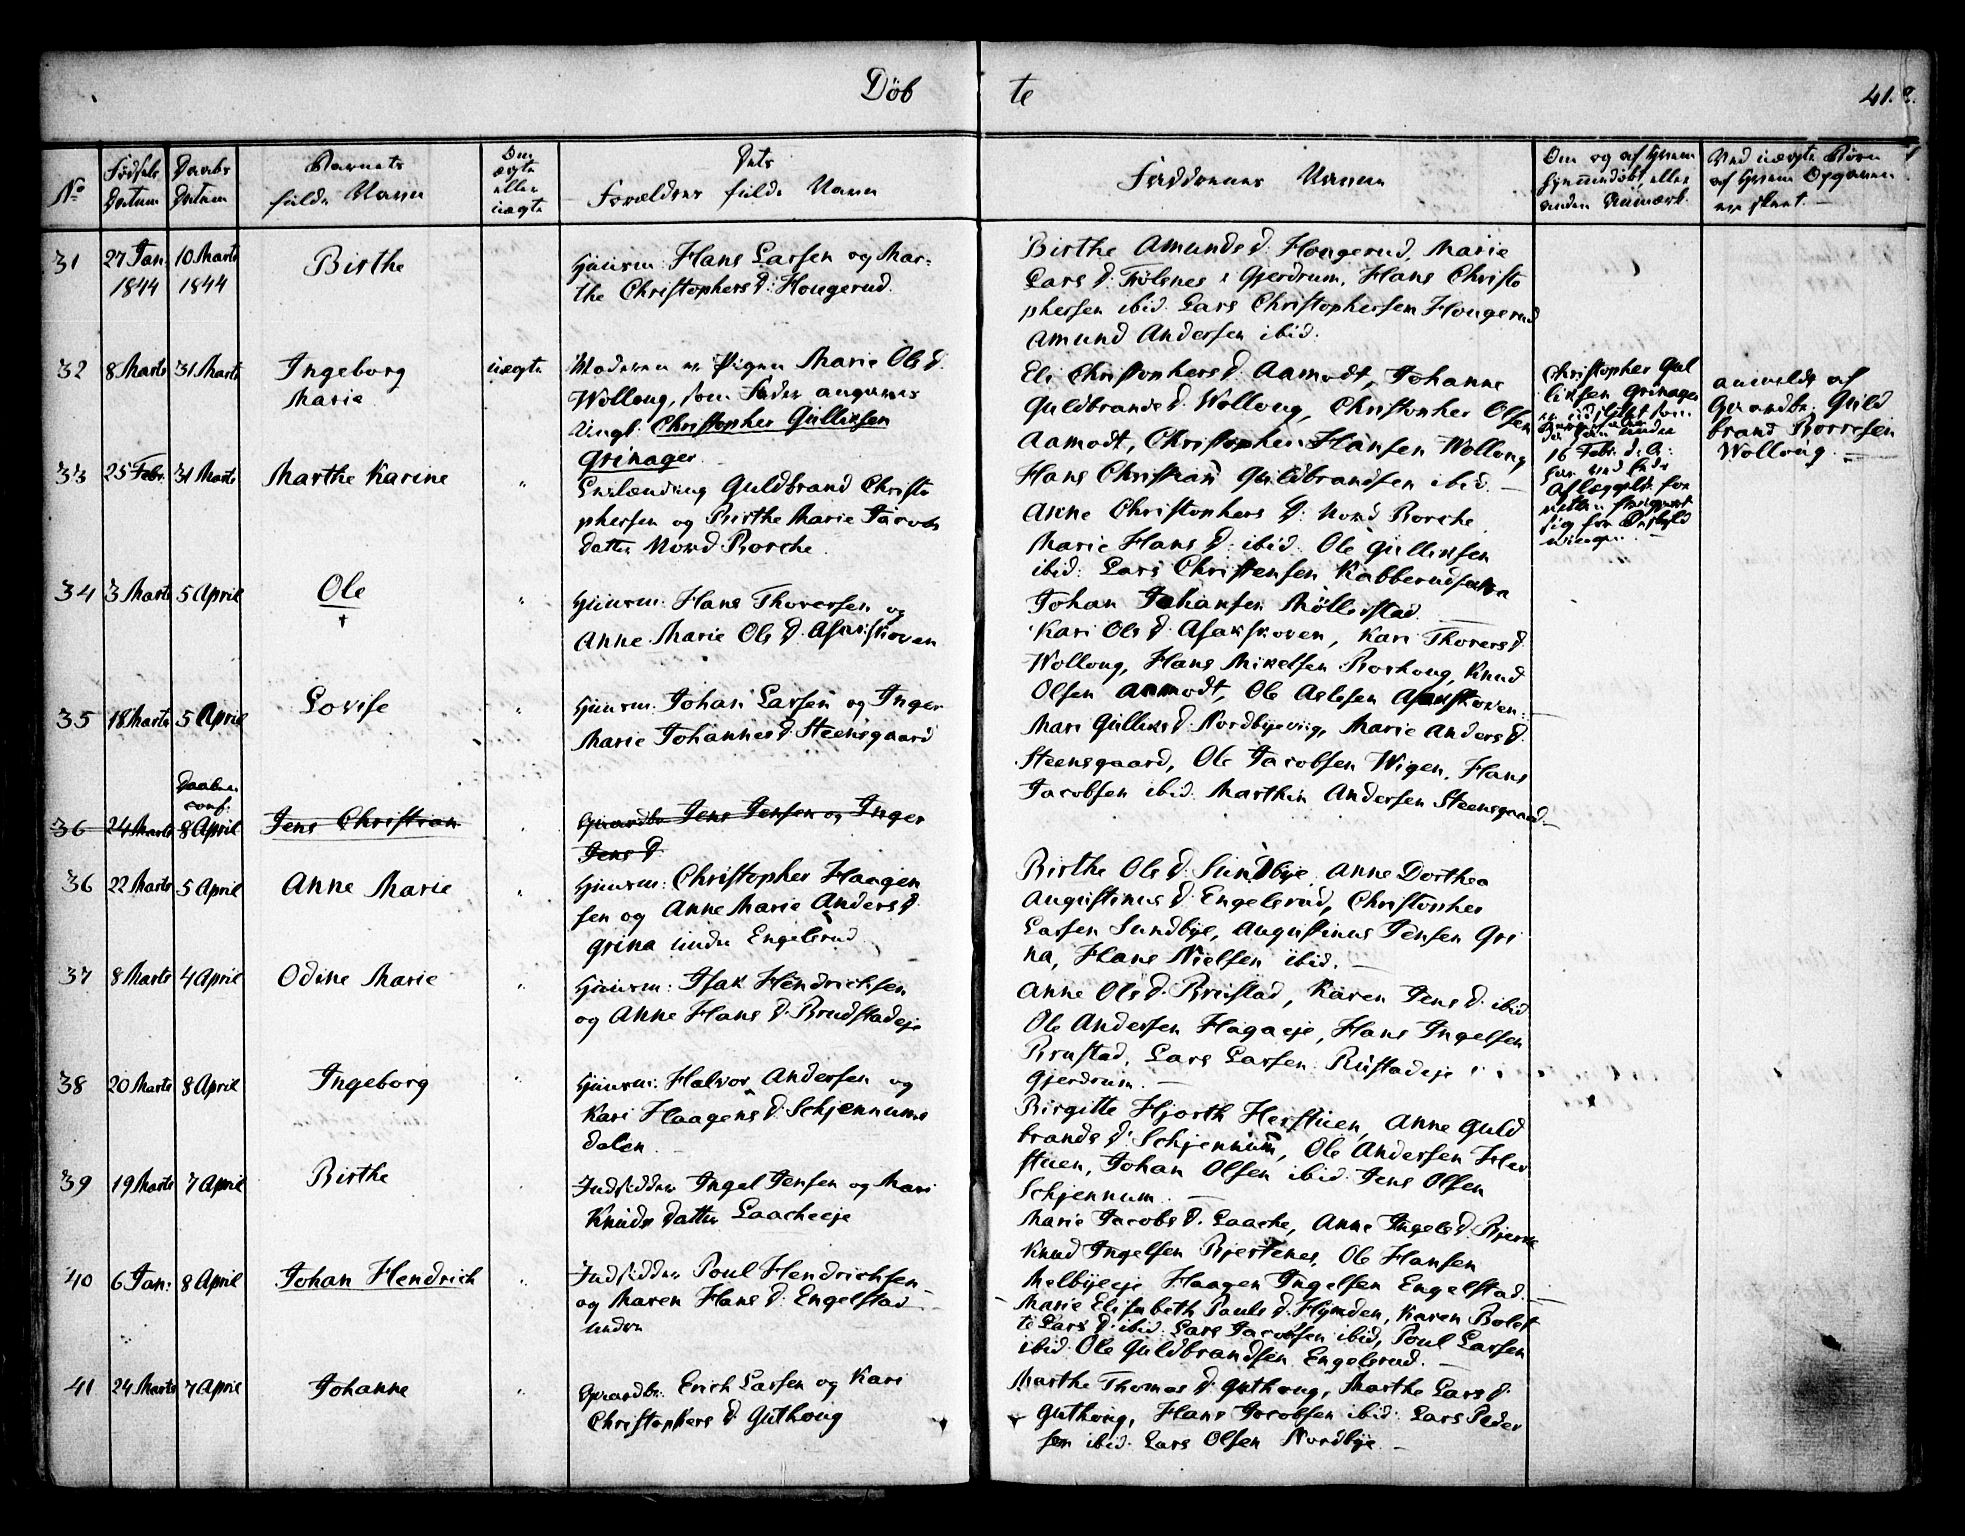 Døb te 41.
No
Fødsels Datum
Daabs Datum
Barnets fulde Navn
Om ægte eller uægte
Dets Forældres fulde Navn
Faddernes Navne
Om og af hvem hjemmedøbt, eller anden Anmærk.
Ved uægte Børn af hvem Opgaven er skeet.
31 27 Jan. 1844 10 Marts 1844 Birthe
Huusm: Hans Larsen og Mar-
the Christophers D: Hougerud.
Birthe Amunds D. Hougerud, Marie
Lars D. Frølsnes i Gjerdrum, Hans Christo
phersen ibid. Lars Christophersen Hougerud
Amund Andersen ibid.
32 8 Marts 31 Marts Ingeborg
Marie
uægte
Moderen er Pigen Marie Ols D.
Wolloug, som Fader angives
Ungk. Christopher Gulliksen
Grinager.
Eli Christophers D. Aamodt, Johanne
Guldbrands D. Wolloug, Christopher Olsen
Aamodt, Christopher Hansen Wolloug
Hans Christian Guldbrandsen ibid. —
Christopher Gul
liksen Grinager
er udlagt som
16 Febr. d. A.
anmeldt af
Gaardbr. Guld
brand Borresen
Wolloug. —
33 25 Febr. 31 Marts Marthe Karine "
Guldbrand Christo
phersen og Birthe Marie Jacobs
datter Nord Borche.
Anne Christophers D: Nord Borche
Marie Hans D. ibid. Ole Gulliksen
ibid: Lars Christensen Kabberud
Johan Johansen Møllerstad.
34 3 Marts 5 April Ole "
†
Huusm: Hans Thoresen og
Anne Marie Ols D. Asakskoven
Kari Ols D. Asakskoven, Kari Thorers D.
Wolloug, Hans Mikelsen Borhoug, Knud
Olsen Aamodt, Ole Aslesen Asakskoven. —
35 18 Marts 5 April Lovise "
Huusm: Johan Larsen og Inger
Marie Johannes D. Steensgaard
Mari Gulliks D. Nordbyeviig, Marie Anders D.
Steensgaard, Ole Jacobsen Wigen, Hans
Jacobsen ibid. Marthin Andersen Steensgaard. —
Daaben
conf.
36 24 Marts 8 April Jens Christian "
Gaardbr. Jens Jensen og Inger
Jens D.
36 22 Marts 5 April Anne Marie "
Huusm: Christopher Haagen
sen og Anne Marie Anders D
Grina under Engelsrud
Birthe Ols D. Sundbye, Anne Dorthea
Augustinus D. Engelsrud, Christopher
Larsen Sundbye, Augustinus Jensen Gri
na, Hans Nielsen ibid. —
37 8 Marts 4 April Odine Marie "
Huusm: Isak Hendricksen
og Anne Hans D. Brudstadeje
Anne Ols D. Brustad, Karen Jens D. ibid
Ole Andersen Hagaeje, Hans Ingelsen
Brustad, Lars Larsen Rustadeje i
Gjerdrum. —
38 20 Marts 8 April Ingeborg "
Huusm: Halvor Andersen og
Kari Haagens D. Schjennums
dalen.
Birgitte Hjorth Herstuen, Anne Guld
brands D. Schjennum, Ole Andersen Her
stuen, Johan Olsen ibid. Jens Olsen
Schjennum. —
39 19 Marts 7 April Birthe
Indsidder Ingel Jensen og Mari
Knuds datter Laacheeje
Marie Jacobs D. Laache, Anne Ingels D. Bjerke
Knud Ingelsen Bjertenes, Ole Hansen
Melbyeeje Haagen Ingelsen Engelstad. —
40 6 Jan: 8 April Johan Hendrich "
Indsidder Poul Hendrichsen
og Maren Hans D. Engelstad
under
Marie Elisabeth Pauls D. Hymden, Karen Bolet
te Lars D. ibid. Lars Jacobsen ibid, Poul Larsen
ibid. Ole Guldbrandsen Engelsrud. —
41 24 Marts 7 April Johanne "
Gaardbr: Erich Larsen og Kari
Christophers D. Guthoug
Marthe Thomas D. Guthoug, Marthe Lars D.
Guthoug, Hans Jacobsen ibid. Lars Peder
sen ibid. Lars Olsen Nordbye. —